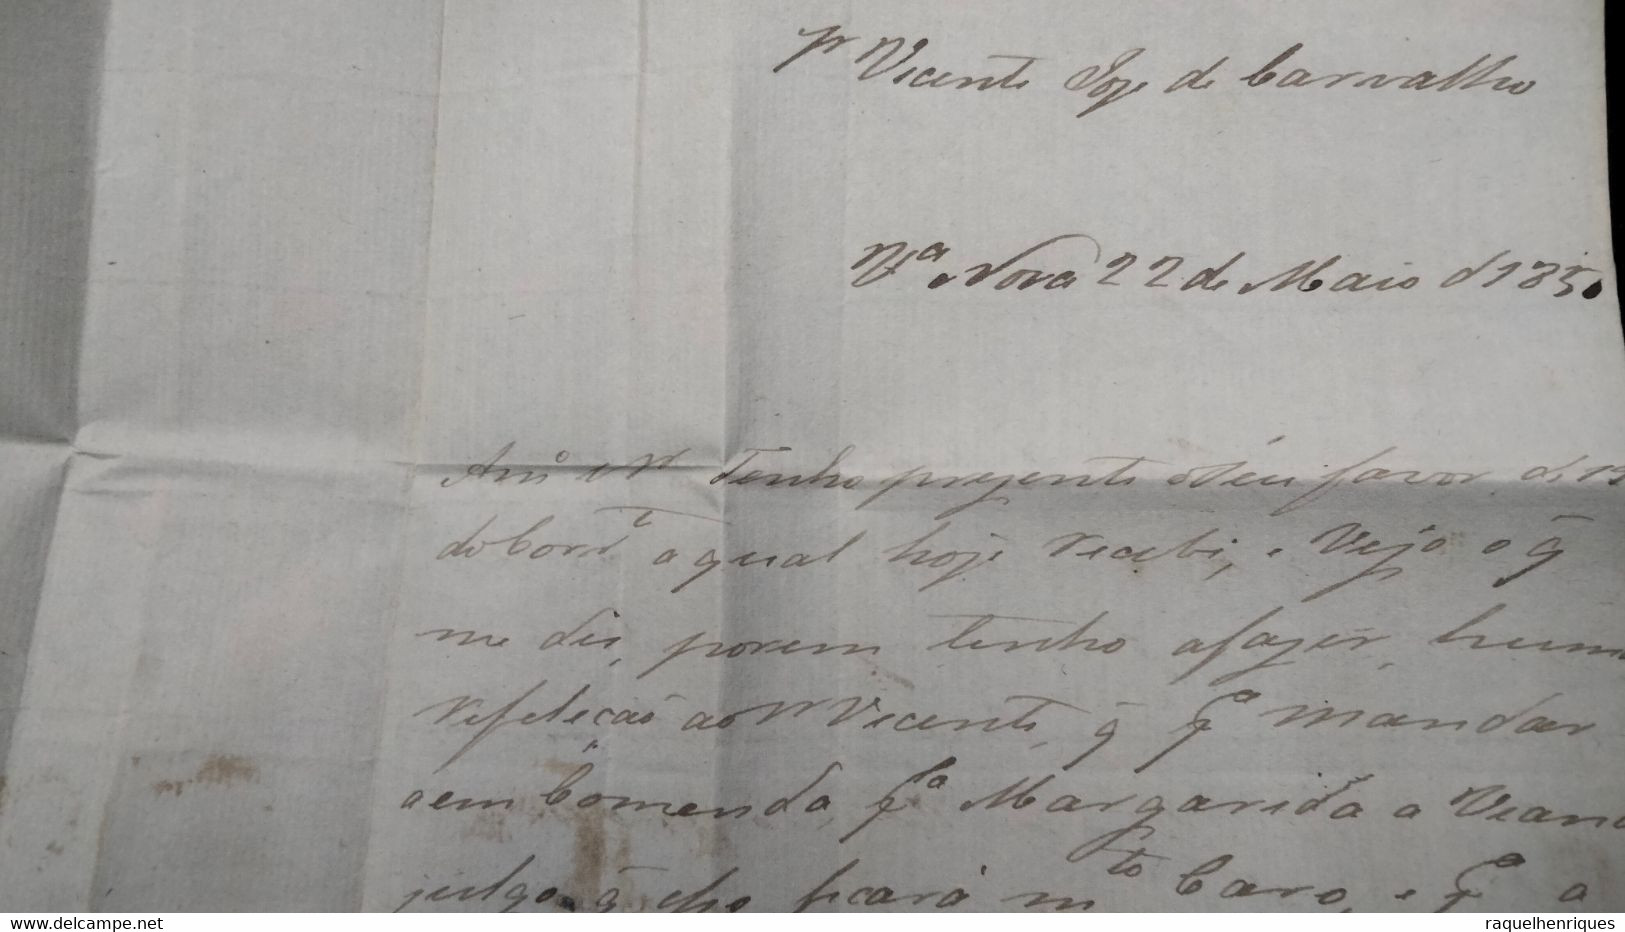 Sr Vicente Joze de Carvalho
Va Nova 22 de Maio d 1850
Amo e Sr Tenho prezente o Seu favor de 19
do Corte o qual hoje recebi, e Vejo o q̃
me dis, porem tenho afazer, huma
refeleção ao Sr Vicente, q̃ pa mandar
a em Comenda, pa Margarida a Viana
julgo q̃ lhe ficará mto Caro, e pa a
delcampe.net
raquelhenriques